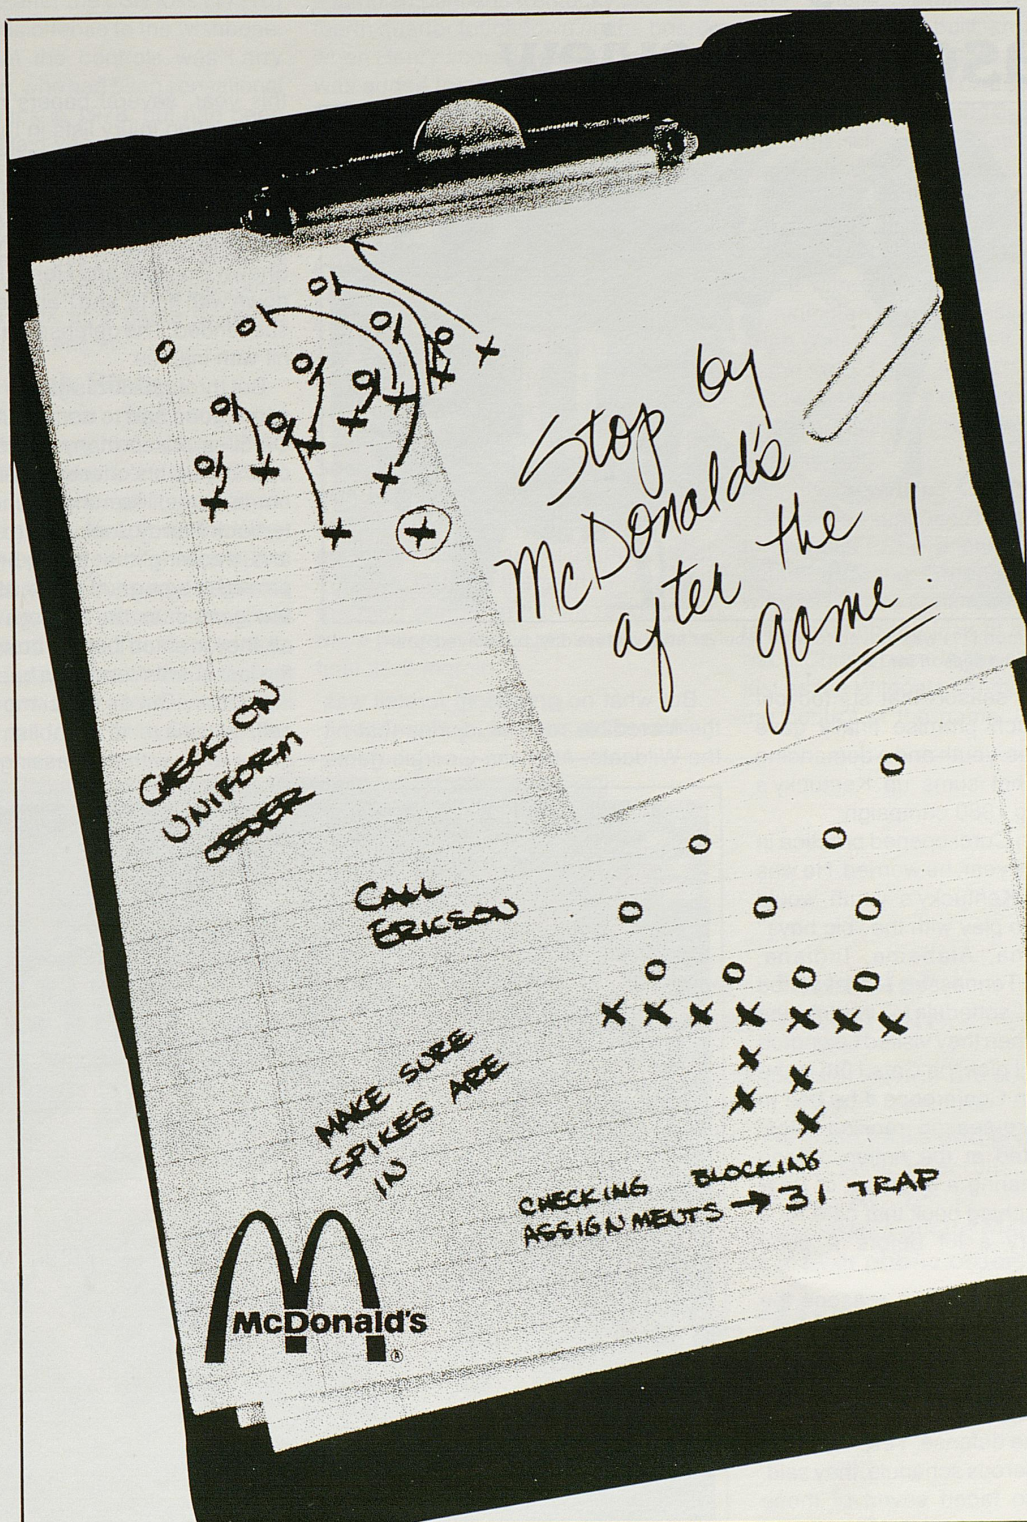 Stop by
McDonald's
after the
game!
CHECK ON
UNIFORM
ORDER
CALL
ERICSON
MAKE SURE
SPIKES ARE
IN
CHECKING BLOCKING
ASSIGNMENTS → 31 TRAP
McDonald's
®